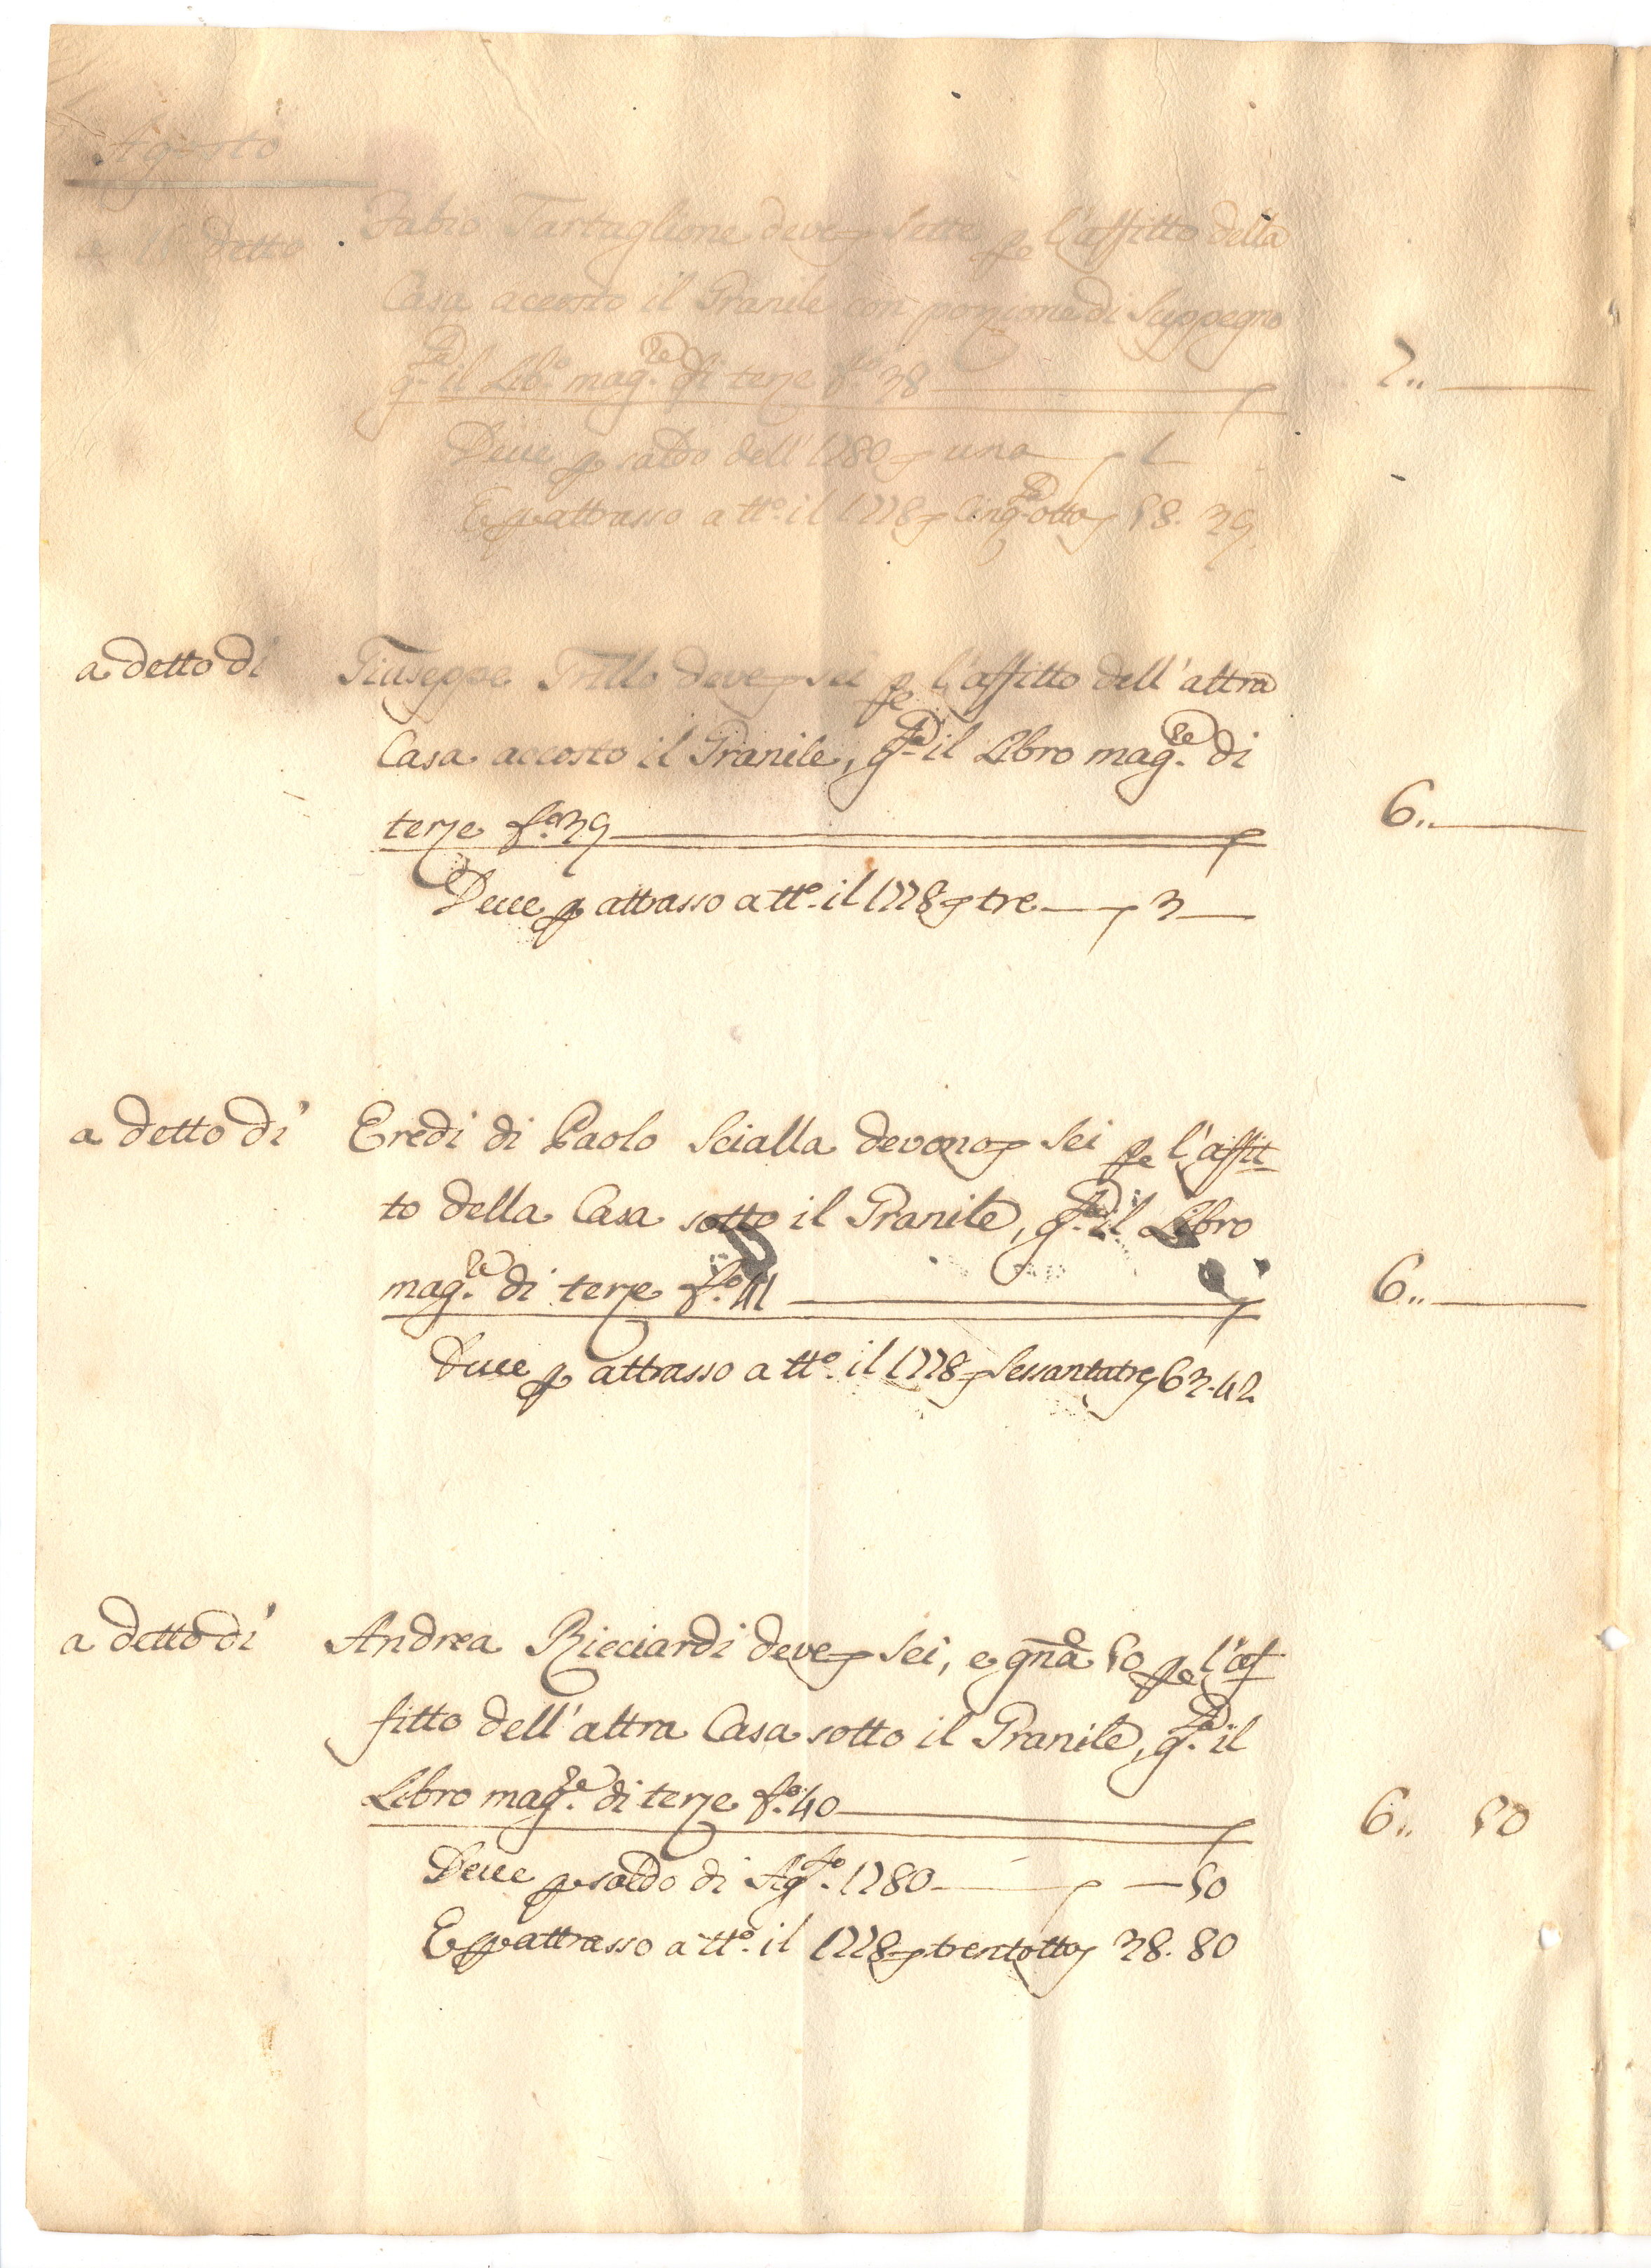 Agosto
a 16 detto Fabio Tartaglione deve sette per l'affitto della
Casa accosto il Granile con porzione di Suppegno
q.ta il Lib.o mag.re di terze f.o 38 7..
Deve per saldo dell'1780 una 1
E per attrasso a tt.o il 1778 cinq.ta otto 58. 39
a detto dì Giuseppe Trillo deve sei per l'affitto dell'altra
Casa accosto il Granile, q.ta il Libro mag.re di
terze f.o 39 6..
Deve per attrasso a tt.o il 1778 tre 3
a detto dì Eredi di Paolo Scialla devono sei per l'affit-
to della Casa sotto il Granile, q.ta il Libro
mag.re di terze f.o 41 6..
Deve per attrasso a tt.o il 1778 sessantatre 63.42
a detto dì Andrea Ricciardi deve sei, e gna 50 per l'af-
fitto dell'altra Casa sotto il Granile, q.ta il
Libro mag.re di terze f.o 40 6.. 50
Deve per saldo di Ag.to 1780 50
E per attrasso a tt.o il 1778 trentotto 38. 80